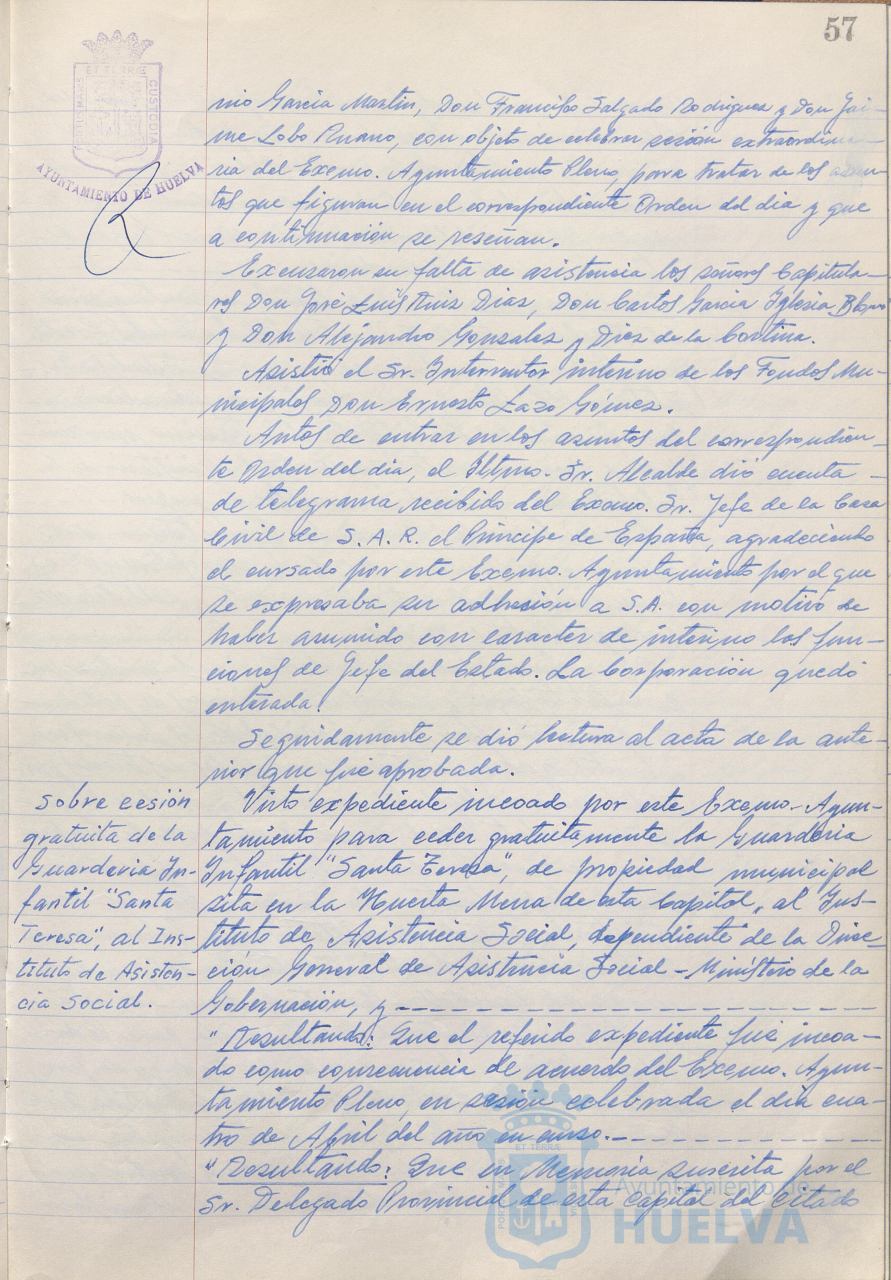 57
ET TERRIS
PORTUS MARIS
CUSTODIA
AYUNTAMIENTO DE HUELVA
nio Garcia Martin, Don Francisco Salgado Rodriguez y Don Jai-
me Lobo Ruano, con objeto de celebrar sesión extraordina-
ria del Excmo. Ayuntamiento Pleno, para tratar de los asun-
tos que figuran en el correspondiente Orden del dia y que
a continuación se reseñan.
Excusaron su falta de asistencia los señores Capitula-
res Don José Luis Ruiz Diaz, Don Carlos Garcia Iglesia
y Don Alejandro Gonzalez y Diez de la Cortina.
Asistió el Sr. Interventor interino de los Fondos Mu-
nicipales Don Ernesto Lazo Gómez.
Antes de entrar en los asuntos del correspondien-
te Orden del dia, el Iltmo. Sr. Alcalde dió cuenta -
de telegrama recibido del Excmo. Sr. Jefe de la Casa
Civil de S. A. R. el Principe de España, agradeciendo
el cursado por este Excmo. Ayuntamiento por el que
se expresaba su adhesión a S.A. con motivo de
haber asumido con caracter de interino las fun-
ciones de Jefe del Estado. La Corporación quedó
enterada.
Seguidamente se dió lectura al acta de la ante-
rior que fué aprobada.
Sobre cesión
gratuita de la
Guarderia In-
fantil "Santa
Teresa", al Ins-
tituto de Asisten-
cia Social.
Visto expediente incoado por este Excmo. Ayun-
tamiento para ceder gratuitamente la Guarderia
Infantil "Santa Teresa", de propiedad municipal
sita en la Huerta Mena de esta Capital, al Ins-
tituto de Asistencia Social, dependiente de la Direc-
ción General de Asistencia Social - Ministerio de la
Gobernación, y - - - - - - - - - - - - - - - -
"Resultando: Que el referido expediente fué incoa-
do como consecuencia de acuerdo del Excmo. Ayun-
tamiento Pleno, en sesión celebrada el dia cua-
tro de Abril del año en curso. - - - - - - - - - -
"Resultando: Que en Memoria suscrita por el
Sr. Delegado Provincial de esta Capital del citado
ET TERRA
Ayuntamiento de
HUELVA